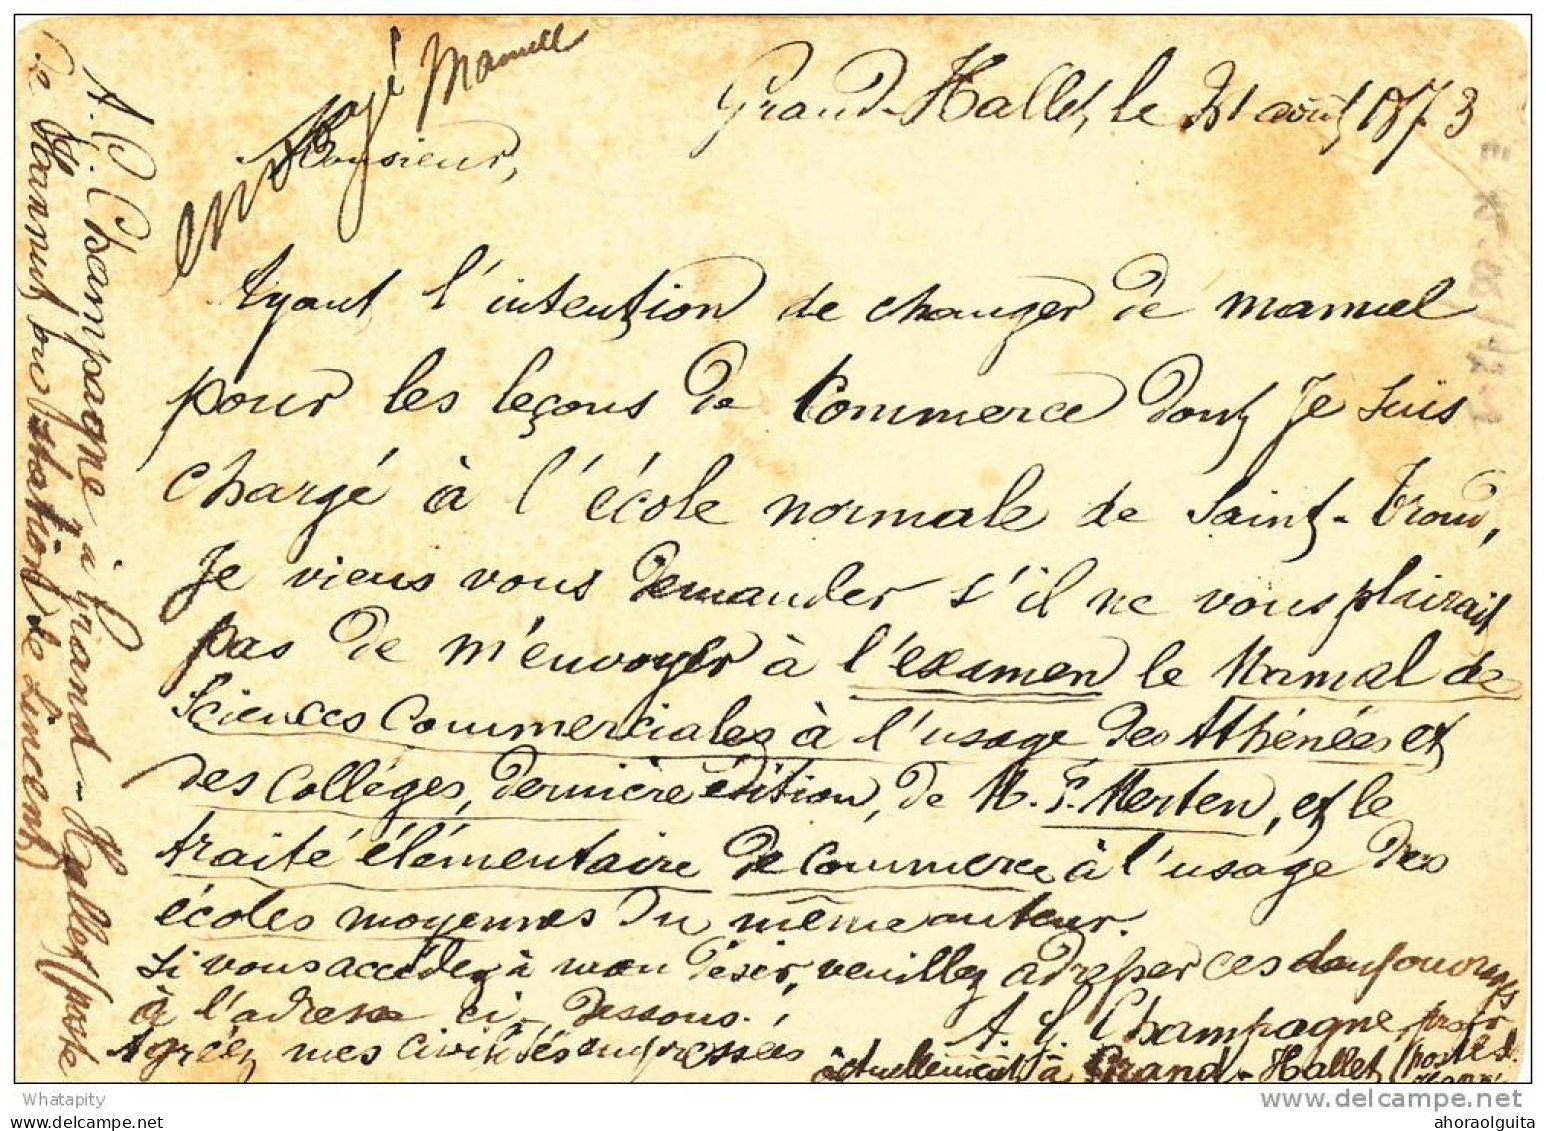 envoyé Manuel
Grand-Hallet, le 31 août 1873
Monsieur,
Ayant l'intention de changer de manuel
pour les leçons de Commerce dont je suis
chargé à l'école normale de Saint-Trond,
Je viens vous demander s'il ne vous plairait
pas de m'envoyer à l'examen le Manuel de
Sciences Commerciales à l'usage des Athénées et
des Collèges, dernière édition, de M. F. Merten, et le
traité élémentaire de Commerce à l'usage des
écoles moyennes du même auteur.
Si vous accédez à mon désir, veuillez adresser ces deux ouvrages
à l'adresse ci-dessous.
Agréez mes civilités empressées
Champagne, profr
actuellement à Grand-Hallet (poste d.
Champagne à Grand-Hallet (poste
de Hannut pour station de Lincent)
Whatapity
delcampe.net
ahoraolguita